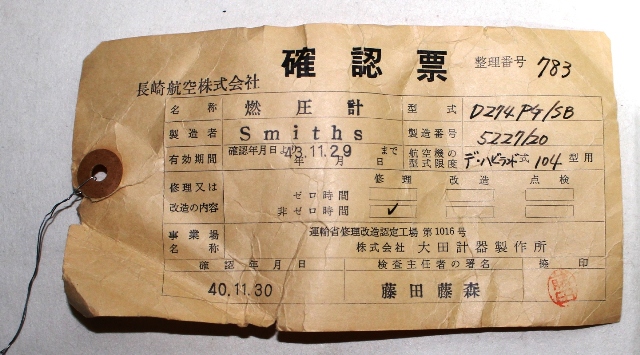 確認票
整理番号 783
長崎航空株式会社
名称 燃圧計 型式 DZ74PG/SB
製造者 Smiths 製造番号 5227/20
有効期間 確認年月日より 43.11.29 年 月 日 まで 航空機の型式限度 デ・ハビランド式 104 型用
修理 改造 点検
修理又は改造の内容 ゼロ時間
非ゼロ時間 ✓
事業場名称 運輸省修理改造認定工場 第1016号
株式会社 大田計器製作所
確認年月日 検査主任者の署名 捺印
40.11.30 藤田藤森